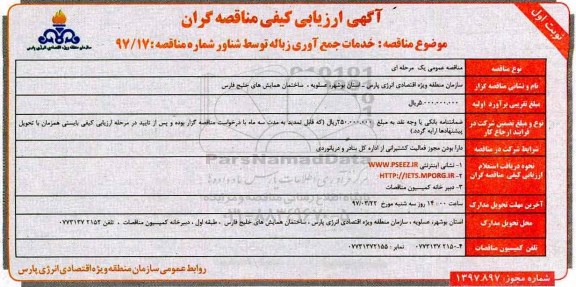 آگهی ارزیابی کیفی مناقصه گران
نوبت اول
موضوع مناقصه : خدمات جمع آوری زباله توسط شناور شماره مناقصه : ۹۷/۱۷
سازمان منطقه ویژه اقتصادی انرژی پارس
نوع مناقصه
مناقصه عمومی یک مرحله ای
نام و نشانی مناقصه گزار
سازمان منطقه ویژه اقتصادی انرژی پارس ، استان بوشهر، عسلویه ، ساختمان همایش های خلیج فارس
مبلغ تقریبی برآورد اولیه
۵,۰۰۰,۰۰۰,۰۰۰ریال
نوع و مبلغ تضمین شرکت در فرایند ارجاع کار
ضمانتنامه بانکی یا وجه نقد به مبلغ ۲۵۰,۰۰۰,۰۰۰ریال (که قابل تمدید به مدت سه ماه با درخواست مناقصه گزار بوده و پس از تایید در مرحله ارزیابی کیفی بایستی همزمان با تحویل پیشنهادها ارایه گردد.)
شرایط شرکت در مناقصه
دارا بودن مجوز فعالیت کشتیرانی از اداره کل بنادر و دریانوردی
نحوه دریافت استعلام ارزیابی کیفی مناقصه گران
۱- نشانی اینترنتی WWW.PSEEZ.IR
۲- HTTP://IETS.MPORG.IR
۳- دبیر خانه کمیسیون مناقصات
آخرین مهلت تحویل مدارک
ساعت ۱۴:۰۰ روز سه شنبه مورخ ۹۷/۰۳/۲۲
محل تحویل مدارک
استان بوشهر، عسلویه ، سازمان منطقه ویژه اقتصادی انرژی پارس ، ساختمان همایش های خلیج فارس ، طبقه اول ، دبیرخانه کمیسیون مناقصات ، تلفن ۲۱۵۴ ۰۷۷۳۱۳۷
تلفن کمیسیون مناقصات
۰۷۷۳۱۳۷ ۲۱۵۰-۴ نمابر : ۰۷۷۳۱۳۷۲۱۵۵
ParsNamadData
روابط عمومی سازمان منطقه ویژه اقتصادی انرژی پارس
شماره مجوز : ۱۳۹۷.۸۹۷